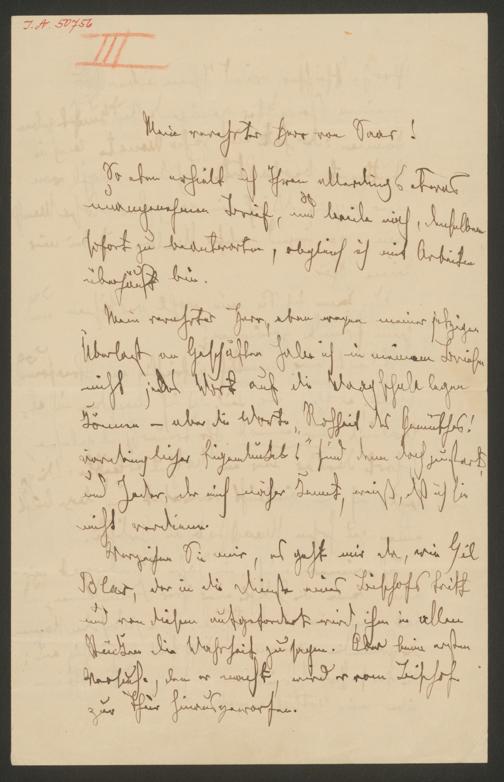 I.N. 50756
III
Mein verehrter Herr von Saar!
So eben erhielt ich Ihren allerdings etwas
unangenehmen Brief, und beeile mich, denselben
sofort zu beantworten, obgleich ich mit Arbeiten
überhäuft bin.
Mein verehrter Herr, eben wegen meiner jetzigen
Überlast an Geschäften habe ich in meinem Briefe
nicht jedes Wort auf die Waagschale legen
können – aber die Worte „Rohheit des Gemüthes!
Eigendünkel!" sind denn doch zu stark,
und Jeder, der mich näher kennt, weiß, daß ich sie
nicht verdiene.
Verzeihen Sie mir, es geht mir da, wie Gil
Blas, der in die Dienste eines Bischofs tritt
und von diesem aufgefordert wird, ihm in allen
Stücken die Wahrheit zu sagen. Aber beim ersten
Versuche, den er macht, wird er vom Bischof
zur Thür hinausgeworfen.